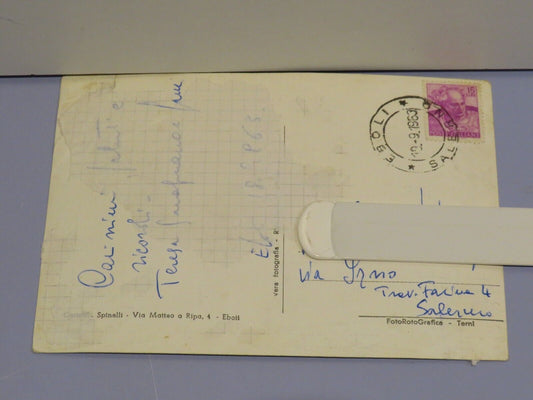 Carissimi saluti e
ricordi.
Teresa
Eboli 18.9.1963
Spinelli - Via Matteo a Ripa, 4 - Eboli
Vera fotografia - R
EBOLI * SALERNO *
-9.1963
15
Via Irno
Trav. Farina 4
Salerno
FotoRotoGrafica - Terni